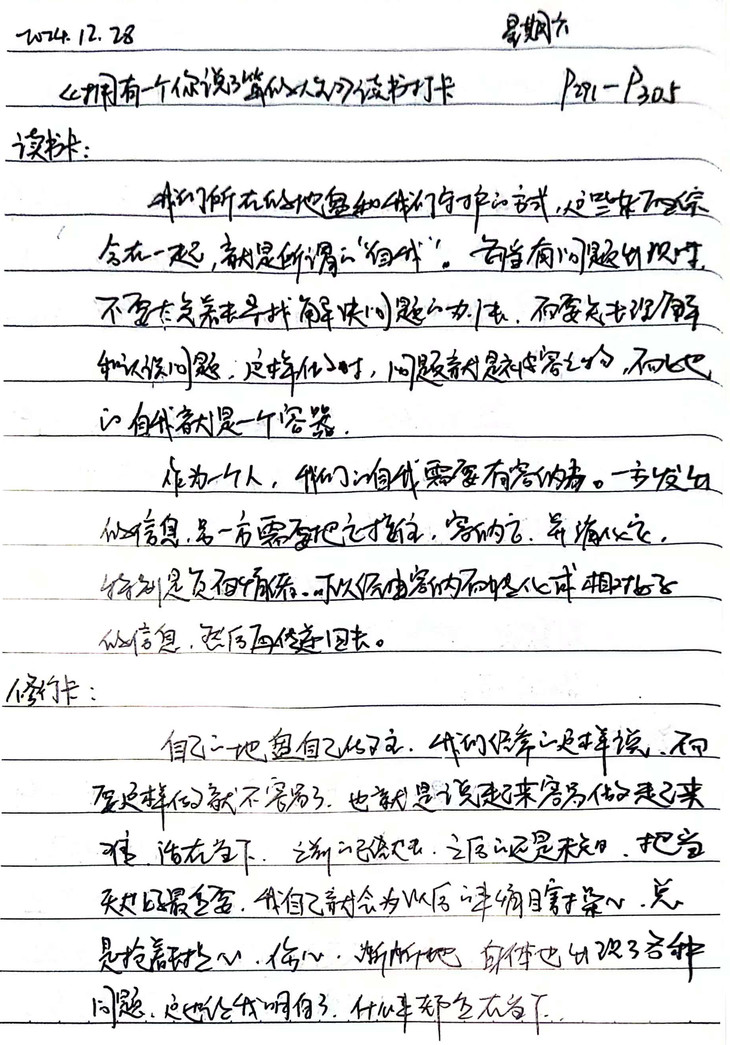 2024.12.28 星期六
《拥有一个你说了算的人生》读书打卡 P291-P305
读书卡:
我们所在的地盘和我们守护的方式,这些东西综
合在一起,就是所谓的“自我”。每当有问题出现时,
不要太急着去寻找解决问题的办法,而要先去理解
和认识问题,这样做时,问题就是被容之物,而此也
的自我就是一个容器.
作为一个人,我们的自我需要有容纳者。一方发出
的信息,另一方需要把它接住,容纳它,并消化它,
特别是负面情绪、可以经由容纳而转化成相对好
的信息,然后再传递回去。
修行卡:
自己的地盘自己做主,我们经常的这样说、而
要这样做就不容易了,也就是说起来容易做起来
难,活在当下、之前的已经过去,之后的还是未知,把当
天过好最重要,我自己就会为以后的事情瞎操心,总
是抢着担心、伤心、渐渐地 身体也出现了各种
问题,这也让我明白了,什么事都重在当下.